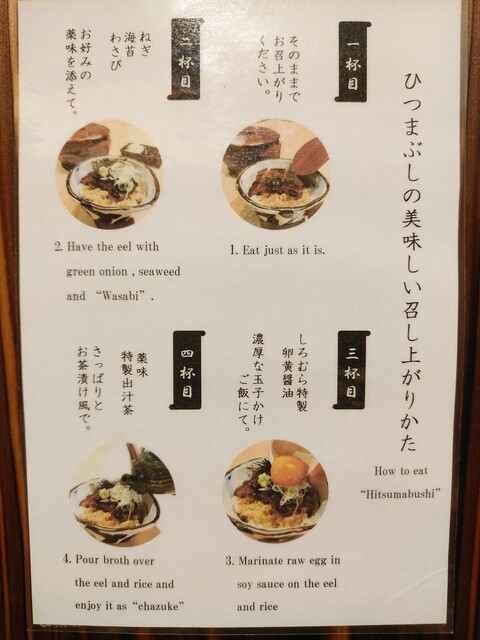 ひつまぶしの美味しい召し上がりかた
How to eat
“Hitsumabushi”
一杯目
そのままで
お召上がり
ください。
1. Eat just as it is.
二杯目
ねぎ
海苔
わさび
お好みの
薬味を添えて。
2. Have the eel with
green onion , seaweed
and “Wasabi” .
三杯目
しろむら特製
卵黄醤油
濃厚な玉子かけ
ご飯にて。
3. Marinate raw egg in
soy sauce on the eel
and rice
四杯目
薬味
特製出汁茶
さっぱりと
お茶漬け風で。
4. Pour broth over
the eel and rice and
enjoy it as “chazuke”